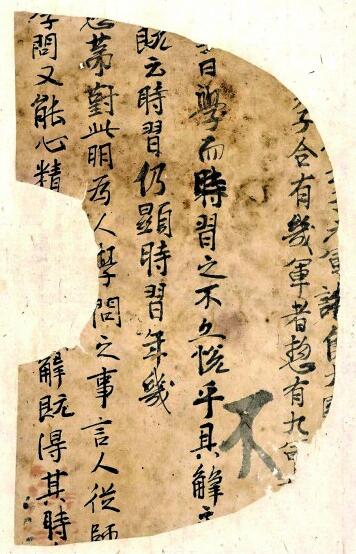 軍諸侯大國
子合有幾軍者惣有九
曰學而時習之不亦悅乎具解
不
既云時習仍顯時習年幾
苐對此明為人學問之事言人從師
學問又能心精
解既得其時